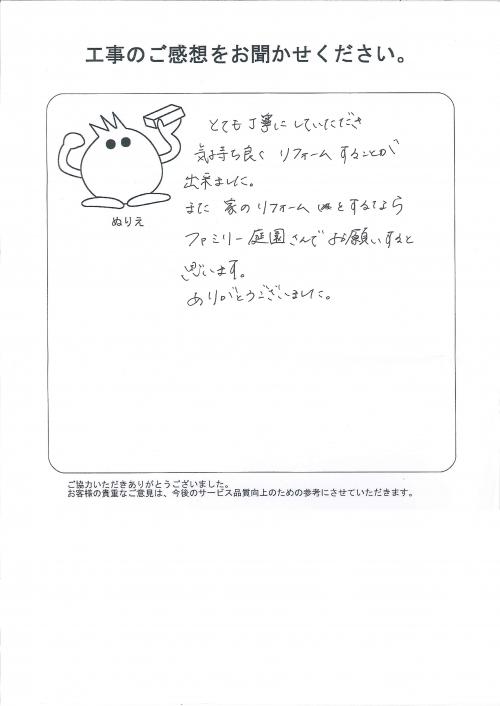 工事のご感想をお聞かせください。
とても丁寧にしていただき
気持ち良く リフォームすることが
出来ました。
また 家のリフォーム をするなら
ファミリー庭園さんでお願いすると
思います。
ありがとうございました。
ぬりえ
ご協力いただきありがとうございました。
お客様の貴重なご意見は、今後のサービス品質向上のための参考にさせていただきます。